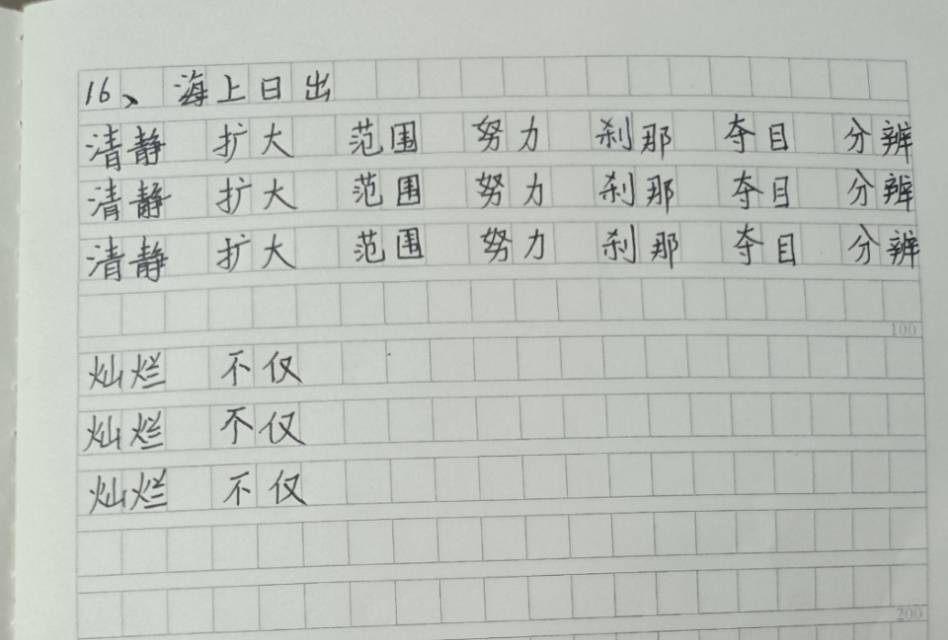 16、海上日出
清静 扩大 范围 努力 刹那 夺目 分辨
清静 扩大 范围 努力 刹那 夺目 分辨
清静 扩大 范围 努力 刹那 夺目 分辨
100
灿烂 不仅
灿烂 不仅
灿烂 不仅
200